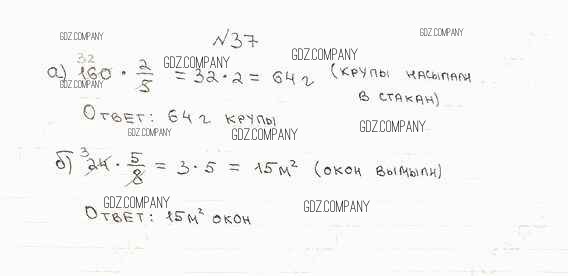 GDZ.COMPANY
N37
GDZ.COMPANY
GDZ.COMPANY
GDZ.COMPANY
а) 160 32 · 2/5 = 32 · 2 = 64 г (крупы насыпали
GDZ.COMPANY
в стакан)
Ответ: 64 г крупы
GDZ.COMPANY
GDZ.COMPANY
GDZ.COMPANY
б) 24 3 · 5/8 = 3 · 5 = 15 м² (окон вымыли)
GDZ.COMPANY
GDZ.COMPANY
Ответ: 15 м² окон